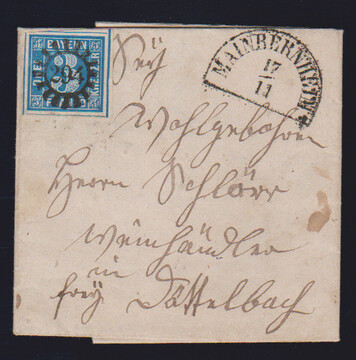 BAYERN
294
3
MAINBERNHEIM
17
11
Sr
Wohlgebohren
Herrn Schlörr
Weinhändler
in
frey Dettelbach